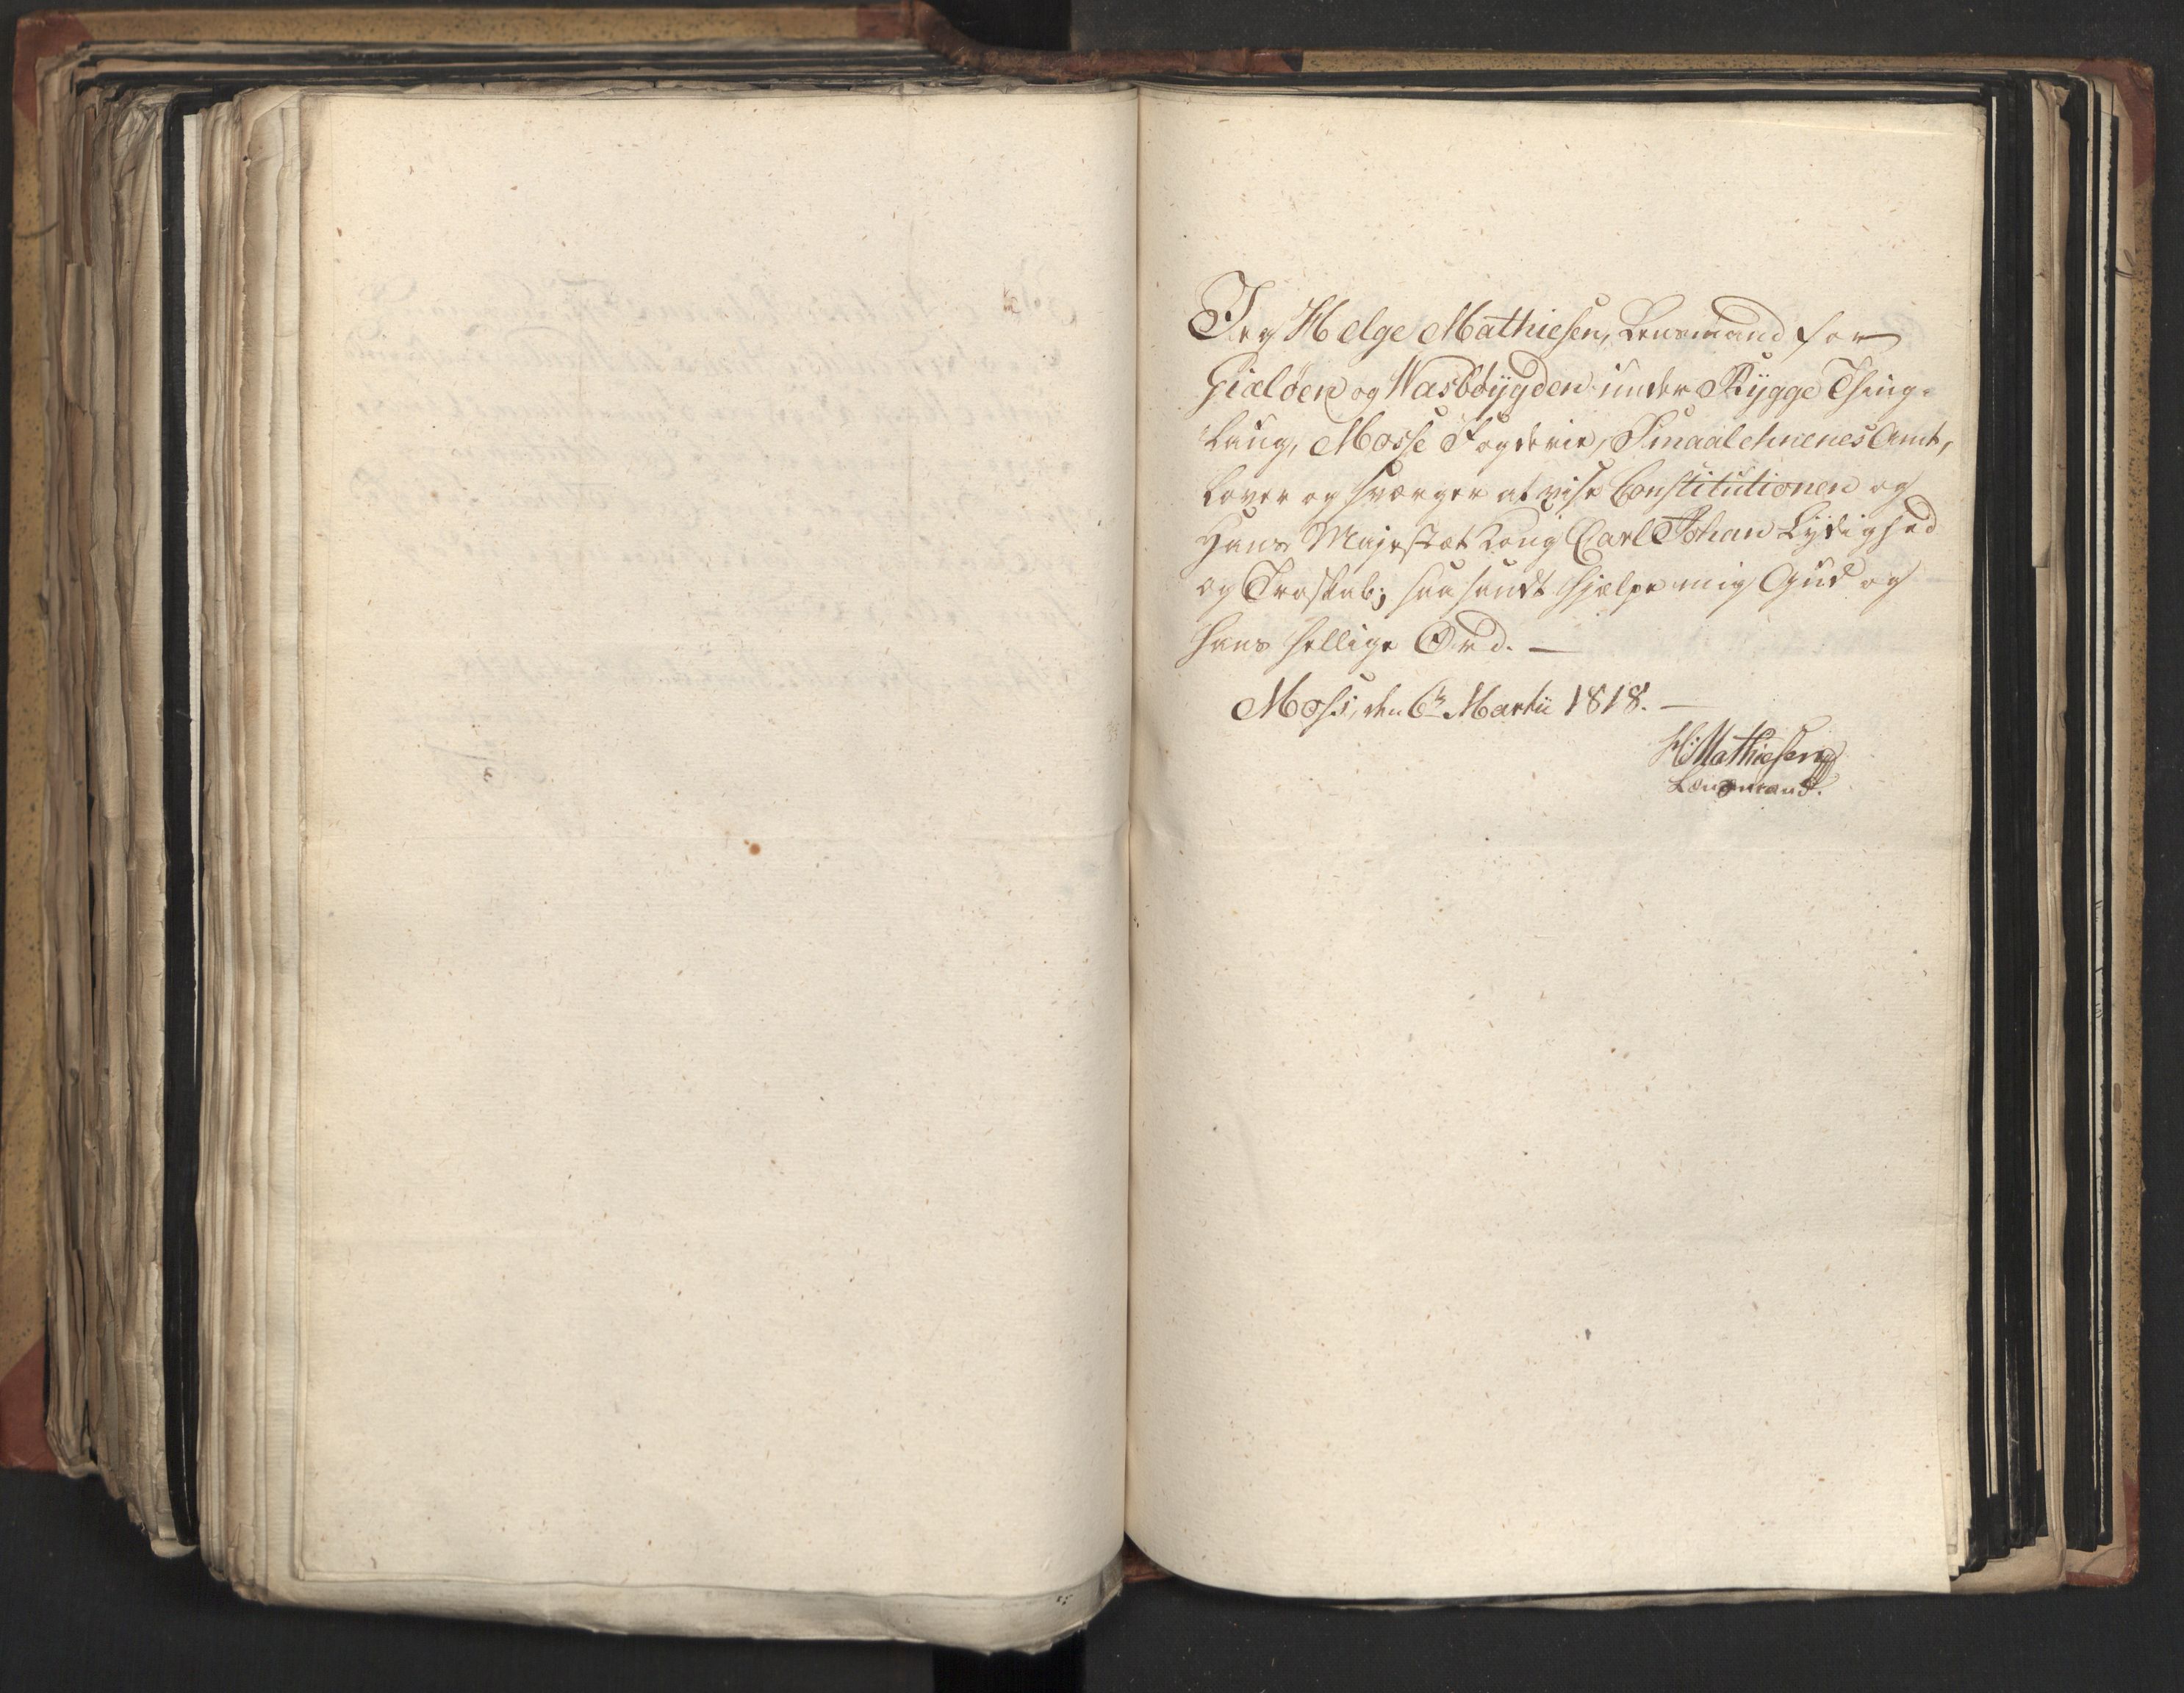 Jeg Helge Mathiesen, Lensmand for
Gialøen og Wasbøygden under Rÿgge Thing-
laug, Mosse Fogderie, Smaalehnenes Amt,
lover og sværger at vise Constitutionen og
Hans Majestæt Kong Carl Johan Lydighed
og Troskab; saa sandt hjelpe mig Gud og
hans hellige Ord. —
Moss, den 6te Martii 1818. —
H. Mathiesen
Lensmand.